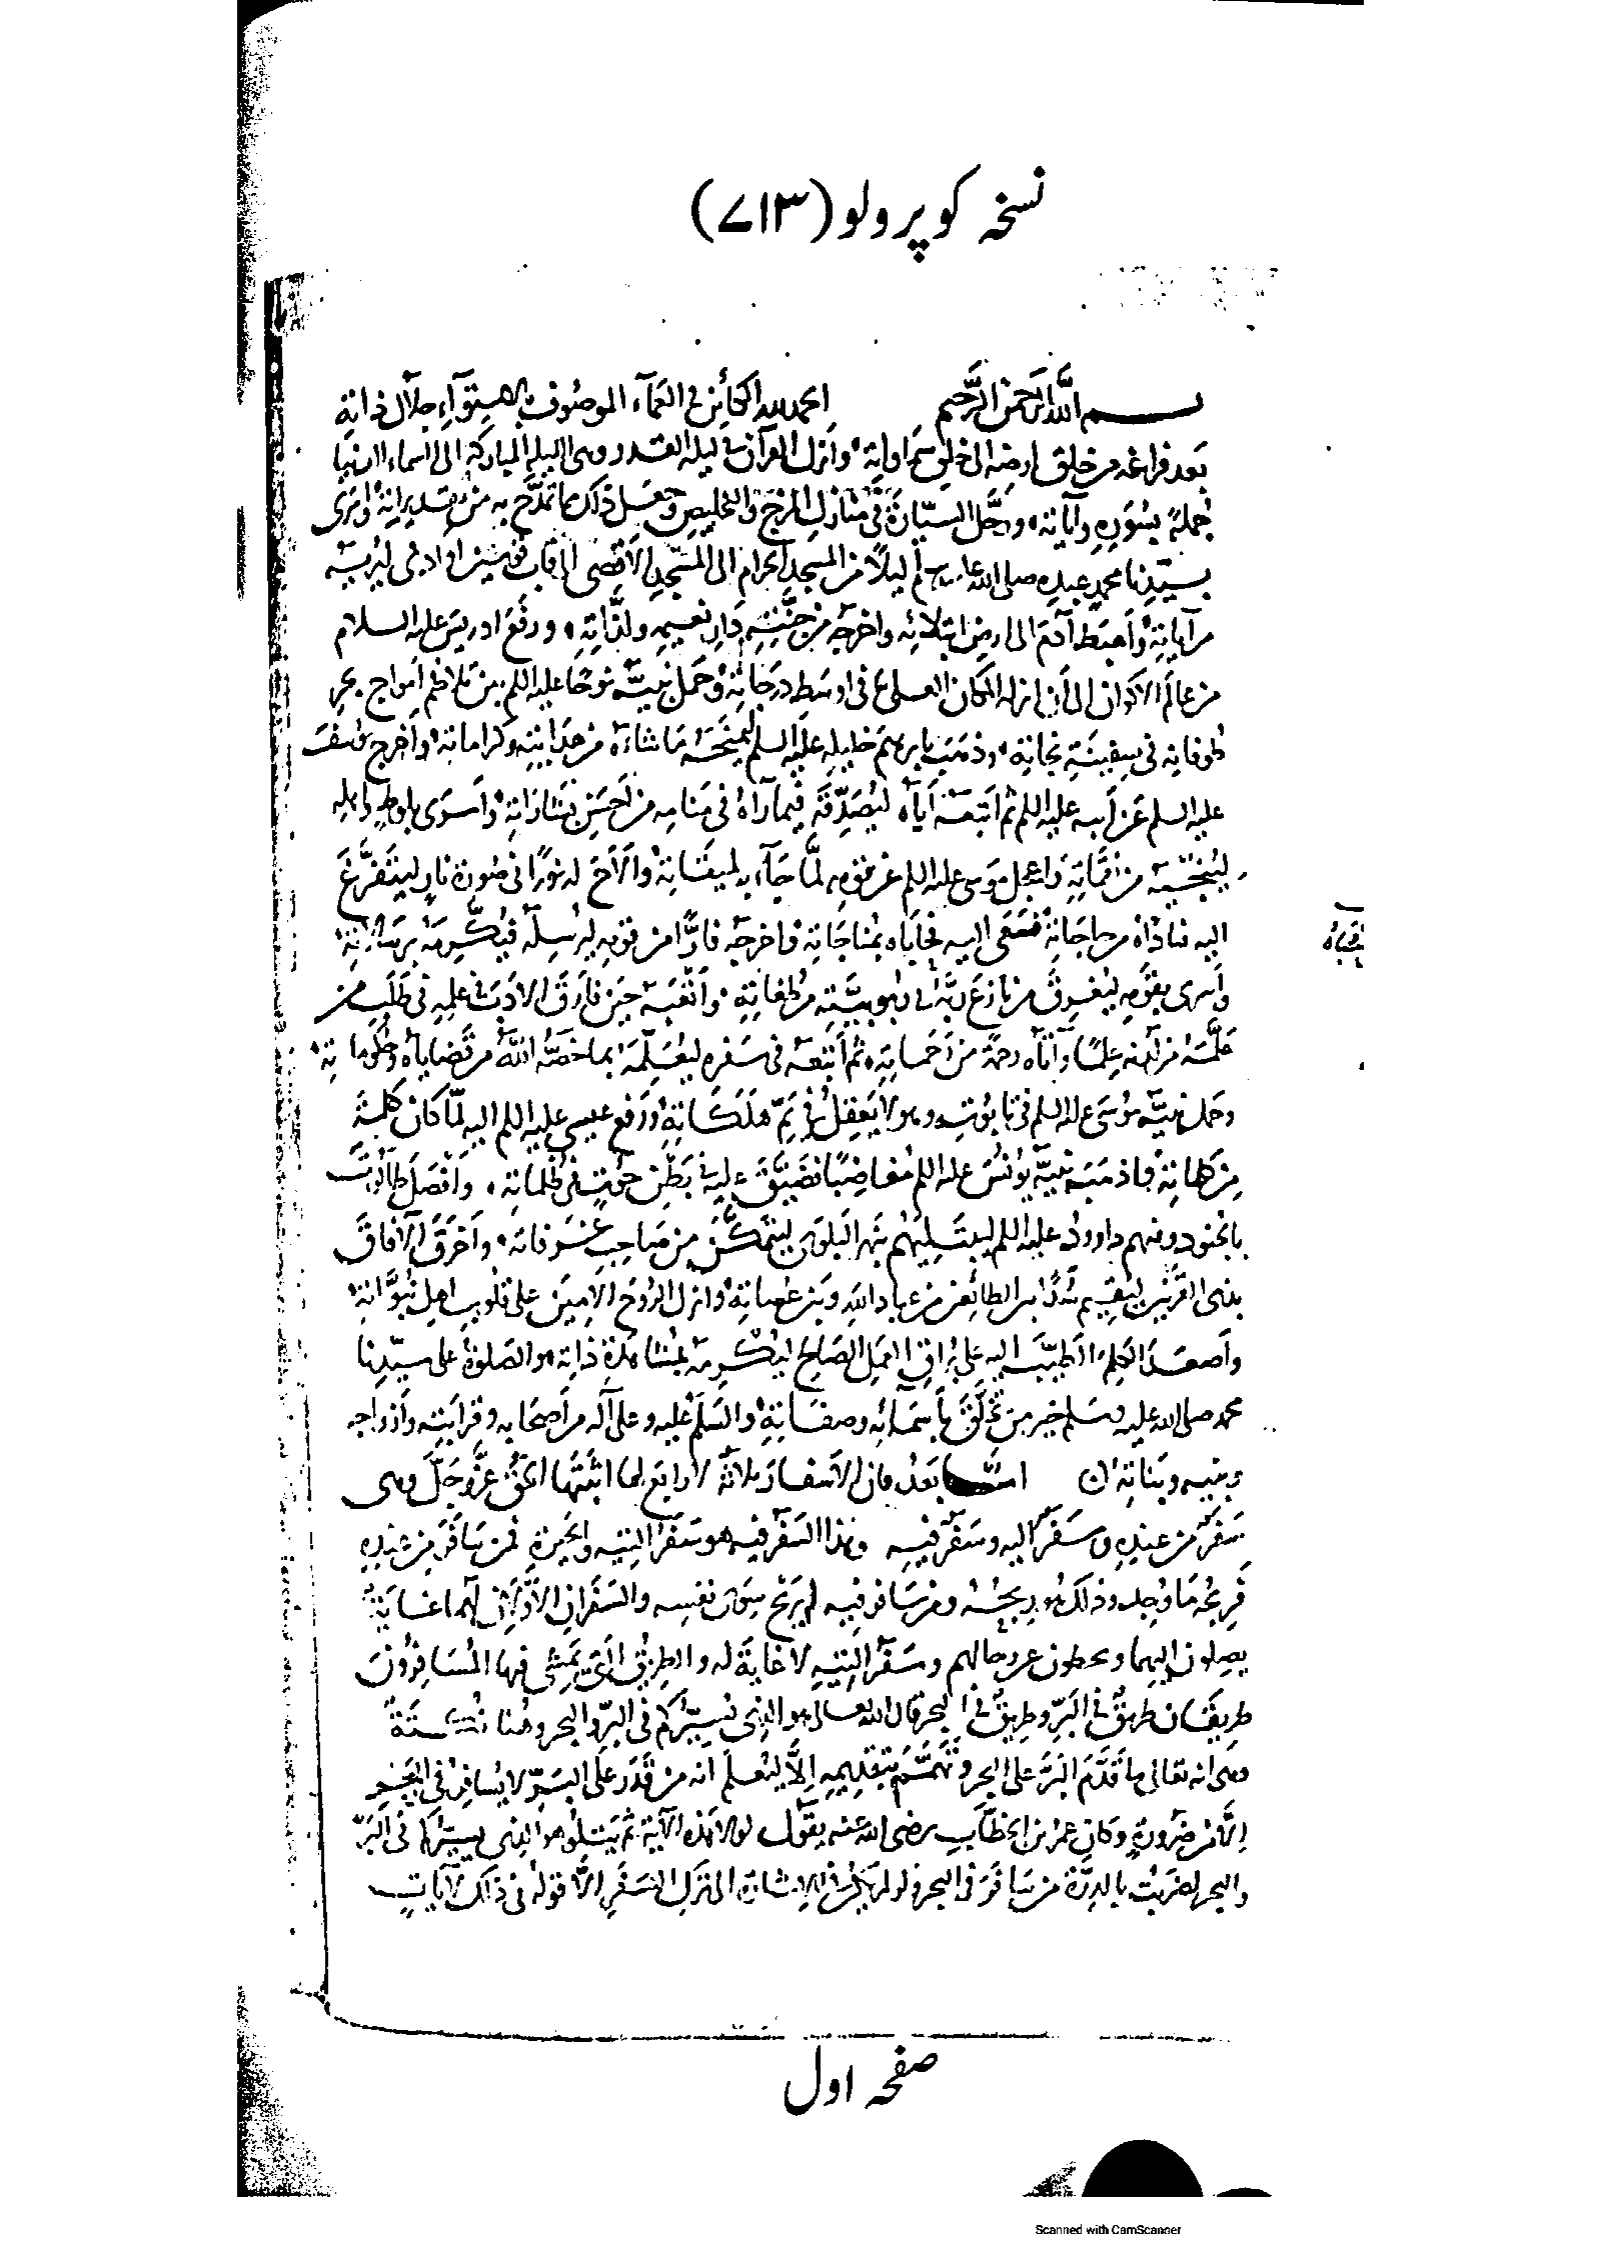 نسخہ کوپرولو (٧١٣)
بسم الله الرحمن الرحيم الحمد لله الكائن في العماء الموصوف بالاستواء جلال ذاته
بعد فراغه من خلق ارضه الى خلق سماواته وانزل القرآن في ليلة القدر وهي الليلة المباركة الى السماء الدنيا
جملة بسوره وآياته ورحل السيارة في منازل المزج والتخليص وجعل ذلك مما تمدح به من تقديراته واسرى
بسيدنا محمد عبده صلى الله عليه وسلم ليلا من المسجد الحرام الى المسجد الاقصى الى قاب قوسين او ادنى ليريه
من آياته واهبط آدم الى ارض ابتلائه واخرجه من جنته دار نعيمه ولذاته ورفع ادريس عليه السلام
من عالم الاكوان الى ان انزله المكان العلي في اوسط درجاته وحمل نبيه نوحا عليه السلم بين تلاطم امواج بحر
طوفانه في سفينة نجاته وذهب بابرهيم خليله عليه السلم ليمنحه ما شاءه من هدايته وكراماته واخرج يوسف
عليه السلم عن ابيه عليه السلم ثم اتبعه اياه ليصدقه فيما رآه في منامه من احسن بشاراته واسرى بلوط واهله
لينجيه من نقماته واعجل موسى عليه السلم عن قومه لما جاء به لميقاته والاح له نورا في صورة نار ليتفرغ
اليه فناداه من حاجاته فسعى اليه فحاباه بمناجاته واخرجه فارا من قومه ليرسله فيكرمه برسالاته
واسرى بقومه ليغرق من نازع ربه في ربوبيته من طغاته واتعبه حين فارق الادب في علمه في طلب من
علمه من لدنه علما وآتاه رحمة من رحماته ثم اتبعه في سفره ليعلمه بما خصه الله من قضاياه وحكوماته
وحمل نبيه موسى عليه السلم في تابوته وهو لا يعقل في يم هلكاته ورفع عيسى عليه السلم اليه لما كان كلمة
من كلماته واذهب نبيه يونس عليه السلم مغاضبا فضيق عليه في بطن حوت في ظلماته وافصل طالوت
بالجنود وفيهم داوود عليه السلم ليبتليهم بنهر البلوى ليتمكن من صاحب غرفاته واخرق الآفاق
بذي القرنين ليقيم سدا بين الطائعين من عباد الله وبين عصاته وانزل الروح الامين على قلوب اهل نبواته
واصعد الكلم الطيب اليه على براق العمل الصالح ليكرمه بمشاهدة ذاته والصلوة على سيدنا
محمد صلى الله عليه وسلم خير من تخلق باسمائه وصفاته والسلم عليه وعلى آله من اصحابه وقرابته وازواجه
وبنيه وبناته اما بعد فان الاسفار ثلاثة لا رابع لها اثبتها الحق عز وجل وهي
سفر من عنده وسفر اليه وسفر فيه وهذا السفر فيه هو سفر التيه والحيرة فمن سافر من عنده
فربحه ما وجد وذلك هو ربحه ومن سافر فيه لم يربح سوى نفسه والسفران الاولان لهما غاية
يصلون اليهما ويحطون عن رحالهم وسفر التيه لا غاية له والطريق التي يمشي فيها المسافرون
طريقان طريق في البر وطريق في البحر قال الله تعالى هو الذي يسيركم في البر والبحر وهنا نكتة
وهي انه تعالى ما قدم البر على البحر وتهمم بتقديمه الا ليعلم انه من قدر على البر لا يسافر في البحر
الا من ضرورة وكان عمر بن الخطاب رضي الله عنه يقول لولا هذه الآية ثم يتلو هو الذي يسيركم في البر
والبحر لضربت بالدرة من سافر في البحر ولو لم يكن في الاشارة الى ترك السفر الا قوله ان في ذلك لآيات
صفحہ اول
Scanned with CamScanner